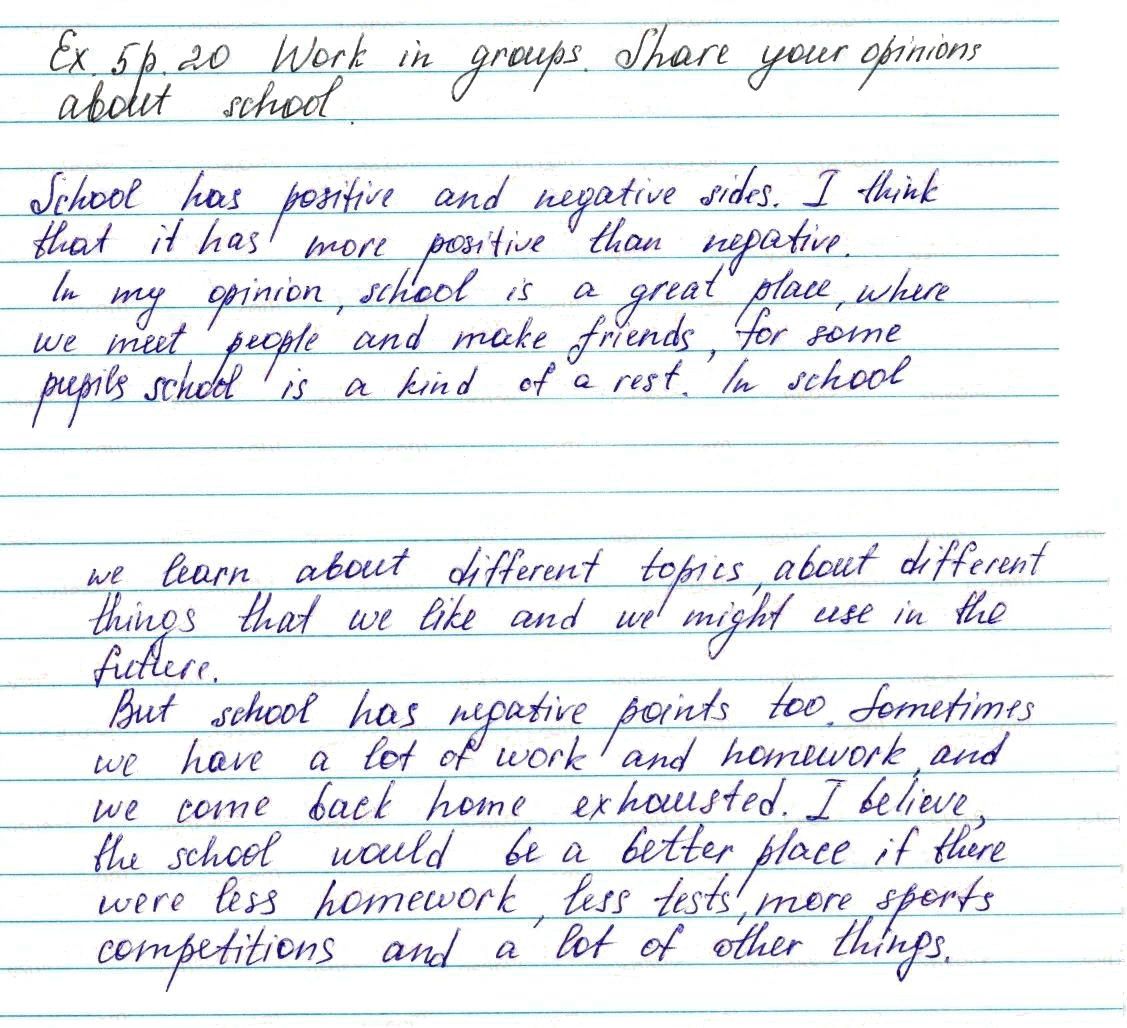 Ex. 5 p. 20 Work in groups. Share your opinions
about school.
School has positive and negative sides. I think
that it has more positive than negative.
In my opinion, school is a great place, where
we meet people and make friends, for some
pupils school is a kind of a rest. In school
we learn about different topics, about different
things that we like and we might use in the
future.
But school has negative points too. Sometimes
we have a lot of work and homework, and
we come back home exhausted. I believe,
the school would be a better place if there
were less homework, less tests, more sports
competitions and a lot of other things.